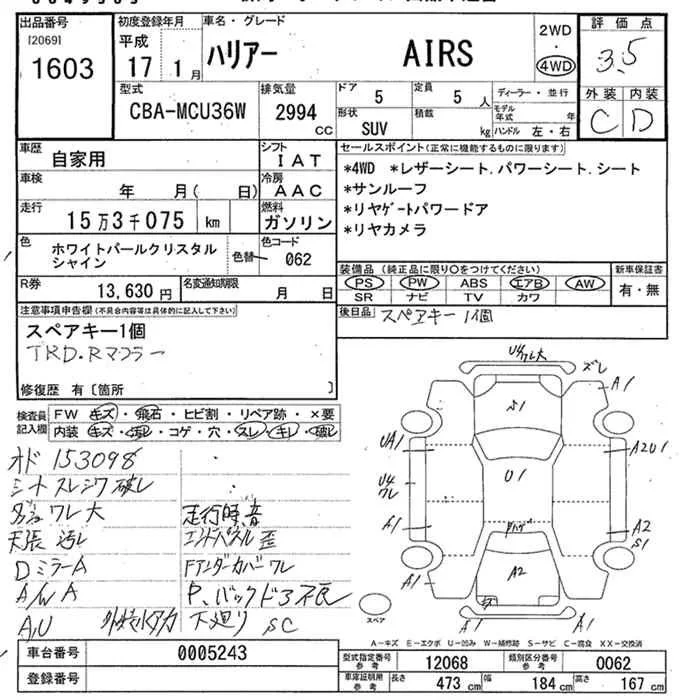 出品番号
[2069]
1603
初度登録年月
平成
17 1月
車名・グレード
ハリアー AIRS
2WD
・
4WD
評価点
3.5
外装 内装
C D
型式
CBA-MCU36W
排気量
2994 CC
ドア 5
形状 SUV
定員 5 人
積載 kg
ディーラー・並行
モデル年式 年
ハンドル 左・右
車歴 自家用
シフト IAT
車検 年 月( 日)
冷房 AAC
走行 15万3千075 km
燃料 ガソリン
色 ホワイトパールクリスタルシャイン
色替
色コード 062
R券 13,630円
名変通知期限 月 日
セールスポイント(正常に機能するものに限ります)
*4WD *レザーシート.パワーシート.シート
*サンルーフ
*リヤゲートパワードア
*リヤカメラ
装備品(純正品に限り○をつけてください)
PS PW ABS エアB AW
SR ナビ TV カワ
新車保証書
有・無
注意事項申告欄(不具合内容等は具体的に記入して下さい)
スペアキー1個
TRD.Rマフラー
修復歴 有〔箇所 〕
後日品 スペアキー 1個
検査員記入欄
FW キズ・飛石・ヒビ割・リペア跡・×要
内装 キズ・汚レ・コゲ・穴・スレ・キレ・破レ
オド 153098
シート スレシワ 破レ
ワレ 大
走行時、音
天張 汚レ
エンドパネル 歪
DミラーA
Fアンダーカバー ワレ
A/W A
P.バックドア不良
A,U
下廻り SC
U4ワレ大
ズレ
A1
S1
UA1
A2U1
U4
ワレ
U1
A1
A2
S1
A2
A1
A1
A1
A1
スペア
A-キズ E-エクボ U-凹み W-補修跡 S-サビ C-腐食 XX-交換済
車台番号 0005243
登録番号
型式指定番号 参考 12068
類別区分番号 参考 0062
車庫証明用 参考 長さ 473 cm 幅 184 cm 高さ 167 cm